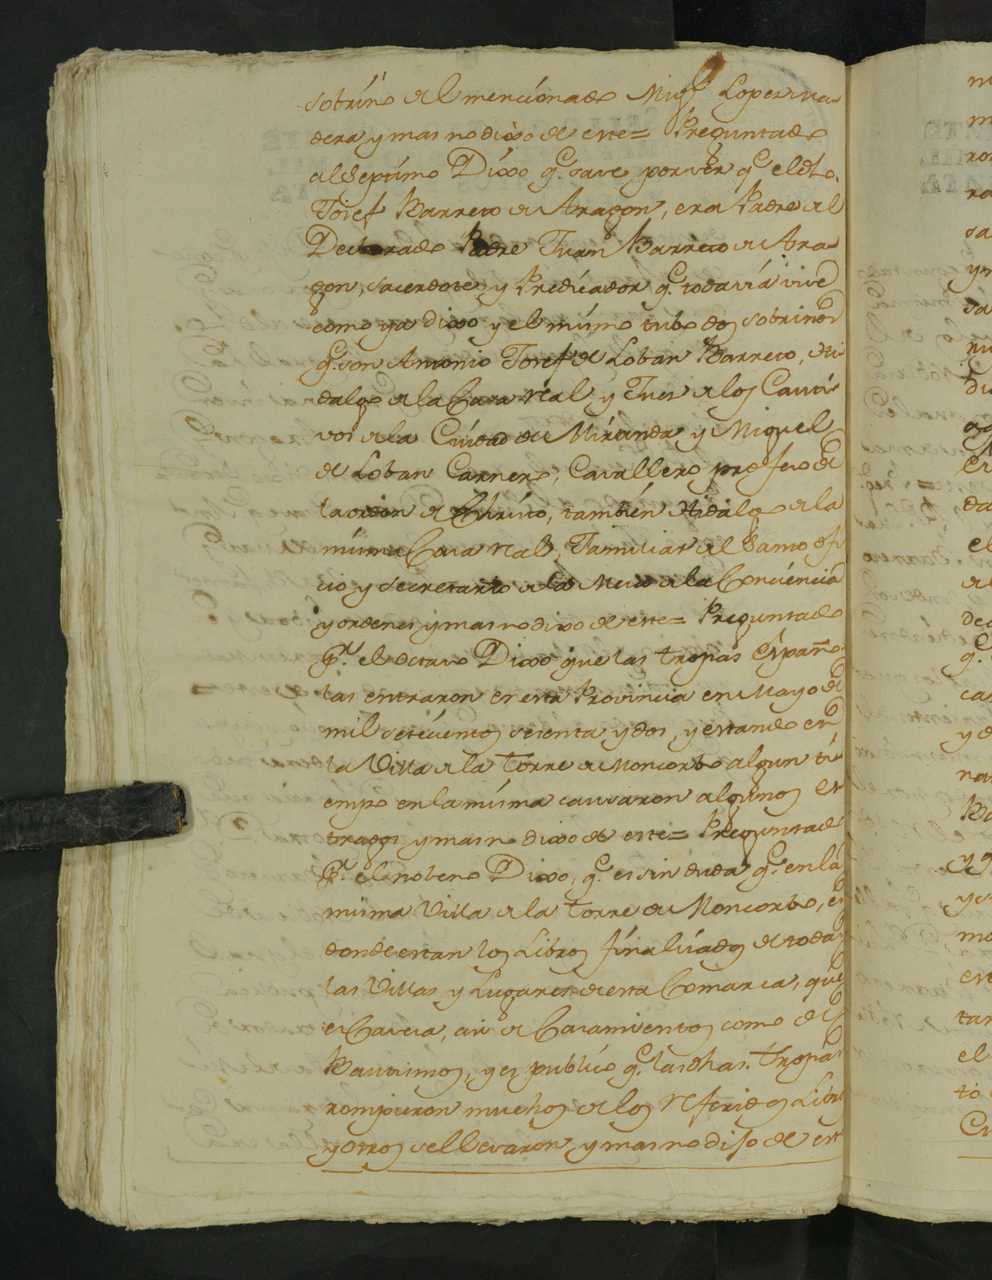 sobrino de el mencionado Migl. Lopes ma-
dera y mas no dixo de este= Preguntado
al Septimo Dixo qe. save por ver qe. el dho.
Josef Barreto de Aragon, era Padre de el
Declarado Padre Juan Barreto de Ara-
gon, sacerdote, y Predicador qe. todavia vive
como ya dixo y el mismo tubo dos sobrinos
qe. son Antonio Josef de Loban Barreto, Hi
dalgo de la Casa real y Jues de los
de la Ciudad de Miranda y Miguel
de Loban Carnero, Cavallero profeso de
la orden de Christo, tambien Hidalgo de la
misma Casa real, Familiar de el Santo ofi
cio y Secretario de la Mesa de la Conciencia
y ordenes y mas no dixo de este= Preguntado
Pr. el octavo Dixo que las tropas Españo-
las entraron en esta Provincia en Mayo de
mil setecientos sesenta y dos, y estando en
la Villa de la Torre de Moncorbo algun ti-
empo en la misma causaron algunos es
tragos y mas no dixo de este= Preguntado
Pr. el nobeno Dixo, qe. es sin duda qe. en la
misma Villa de la Torre de Moncorbo, es
donde estan los Libros finalizados de todas
las Villas y Lugares de esta Comarca, que
es Cavesa, asi de Casamientos como de
Bautismos, y es publico qe. las dhas. Tropas
rompieron muchos de los referidos Libros
y otros se llevaron, y mas no dijo de est